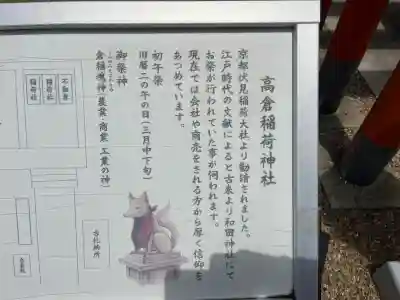 高倉稲荷神社
京都伏見稲荷大社より勧請されました。
江戸時代の文献によると古来より和田神社にて
お祭が行われていた事が伺われます。
現在では会社や商売をされる方から厚く信仰を
あつめています。
初午祭
旧暦二の午の日(三月中下旬)
御祭神
倉稲魂神(農業・商業・工業の神)
稲荷社
稲荷社
古札納所